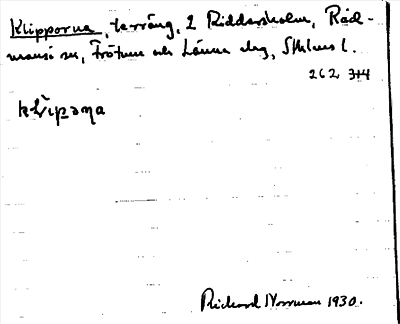 Klipporna, terräng, 2 Riddersholm, Råd-
mansö sn, Frötuna och Länna skg, Sthlms l.
262 344
klìpəɳa
Richard Norrman 1930.